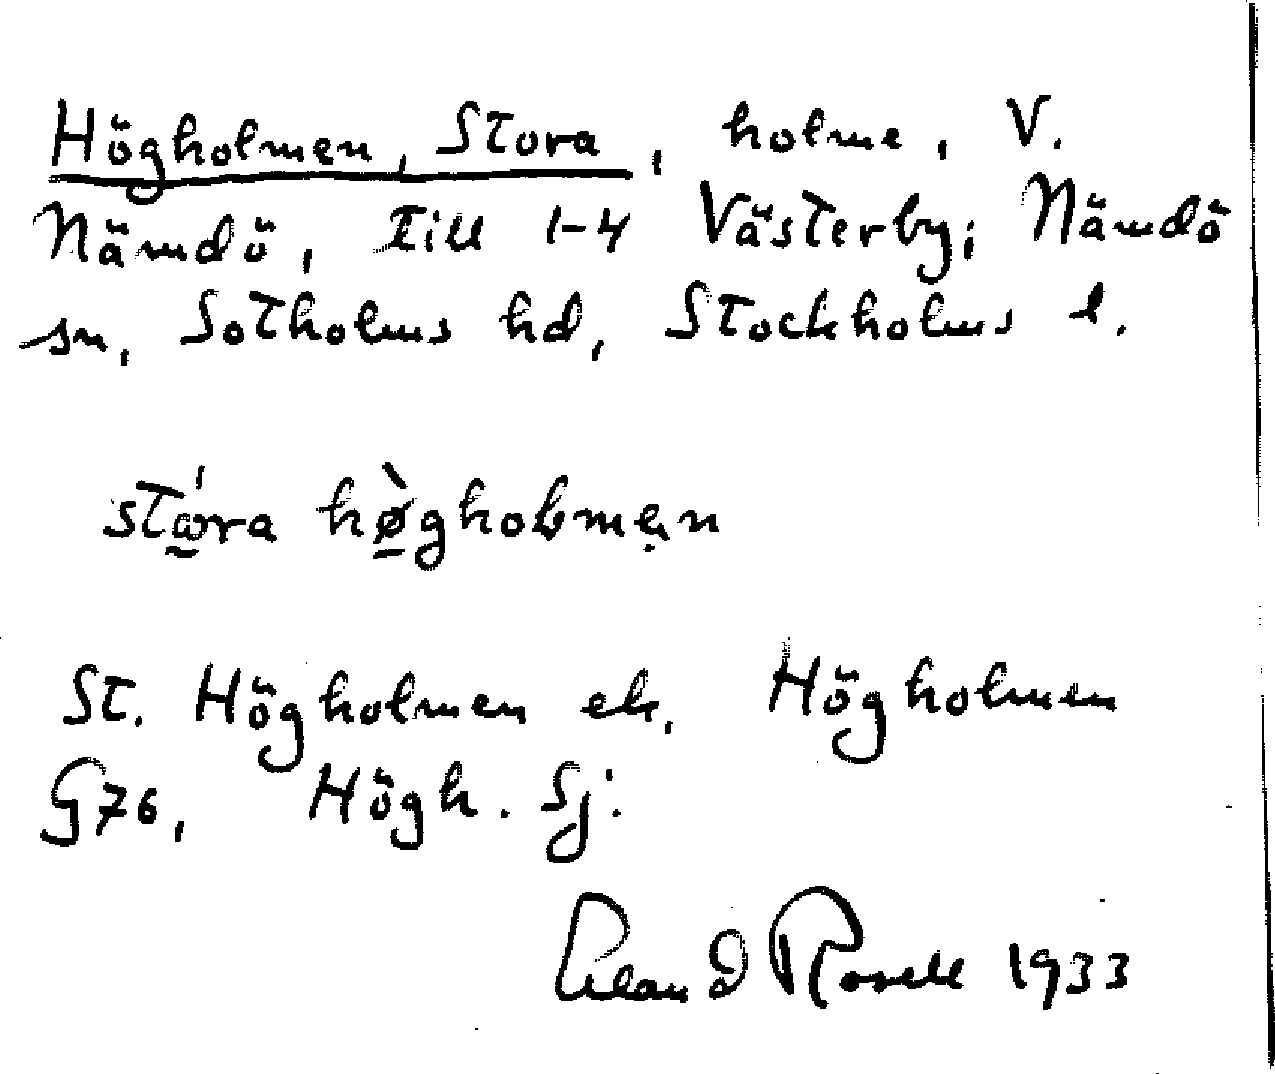 Högholmen, Stora, holme, V.
Nämdö, till 1-4 Västerby; Nämdö
sn, Sotholms hd, Stockholms l.
stώ̱ra hø̱̀gholmẹn
St. Högholmen ek, Högholmen
G76, Högh. Sj.
Rosell 1933